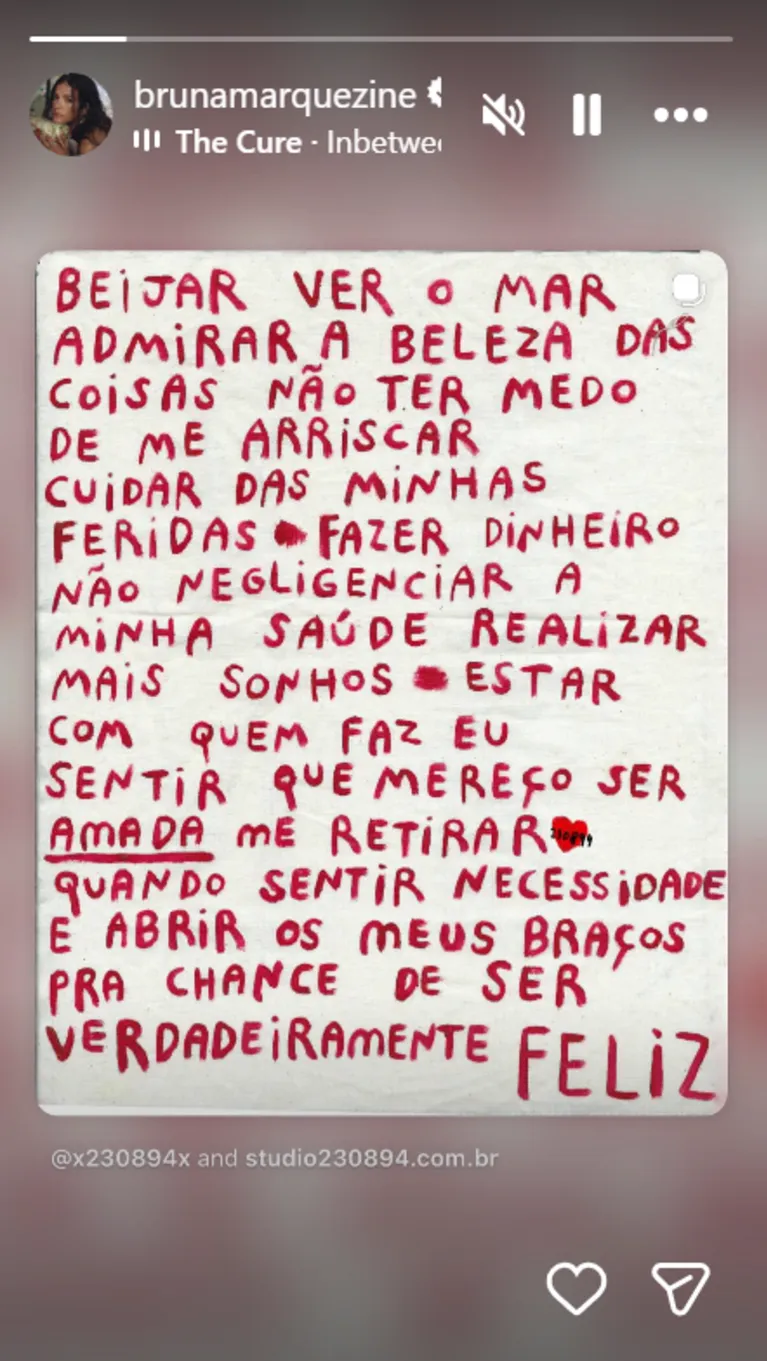 brunamarquezine
The Cure · Inbetwe
BEIJAR VER O MAR
ADMIRAR A BELEZA DAS
COISAS NÃO TER MEDO
DE ME ARRISCAR
CUIDAR DAS MINHAS
FERIDAS FAZER DINHEIRO
NÃO NEGLIGENCIAR A
MINHA SAÚDE REALIZAR
MAIS SONHOS ESTAR
COM QUEM FAZ EU
SENTIR QUE MEREÇO SER
AMADA ME RETIRAR 230894
QUANDO SENTIR NECESSIDADE
E ABRIR OS MEUS BRAÇOS
PRA CHANCE DE SER
VERDADEIRAMENTE FELIZ
@x230894x and studio230894.com.br